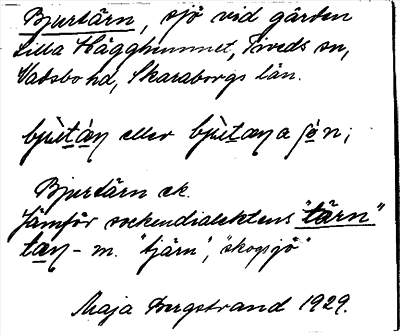 Bjurtärn, sjö vid gården
Lilla Hägghummet, Tiveds sn,
Vadsbo hd, Skaraborgs län.
bju̇tàn eller bju̇tæn a sön;
Bjurtärn ek.
Jämför sockendialektens "tärn"
tæn - m. "tjärn", "skogsjö"
Maja Bergstrand 1929.